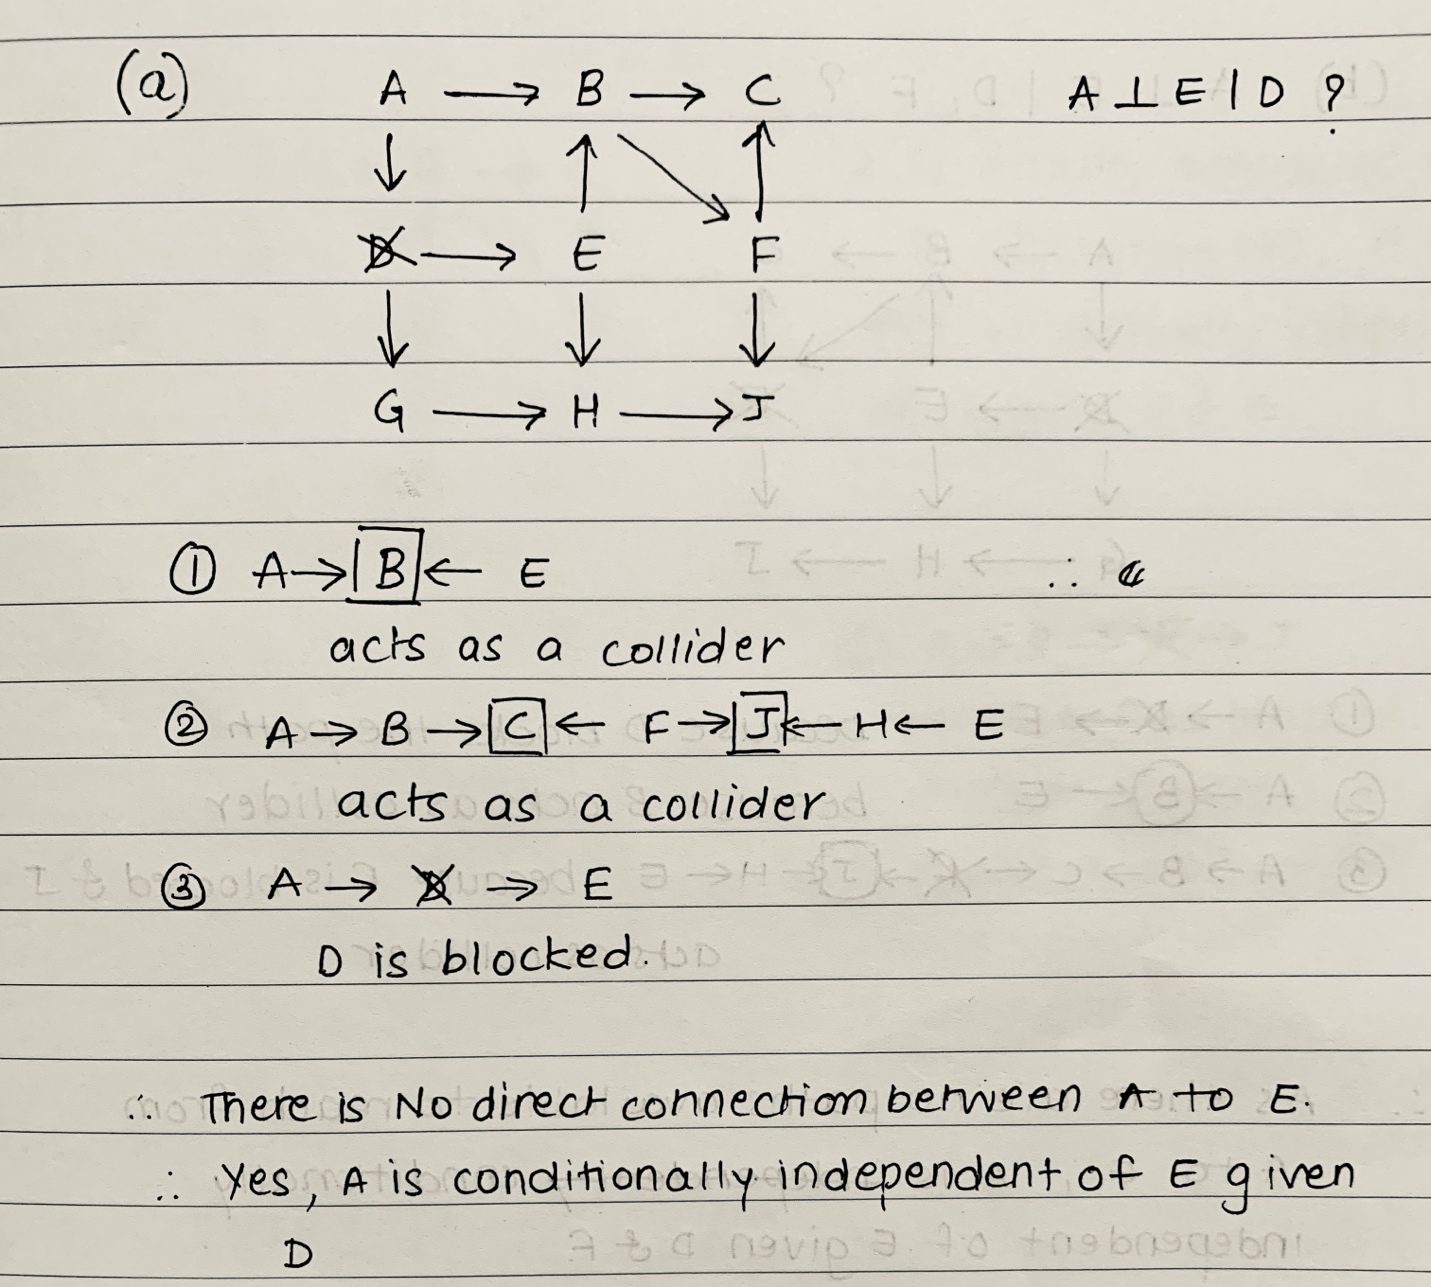 (a) A → B → C A ⊥ E | D ?
↓ ↑ ↘ ↑
D → E F
↓ ↓ ↓
G → H → J
① A → B ← E ∴
acts as a collider
② A → B → C ← F → J ← H ← E
acts as a collider
③ A → D → E
D is blocked.
∴ There is No direct connection between A to E.
∴ Yes, A is conditionally independent of E given
D